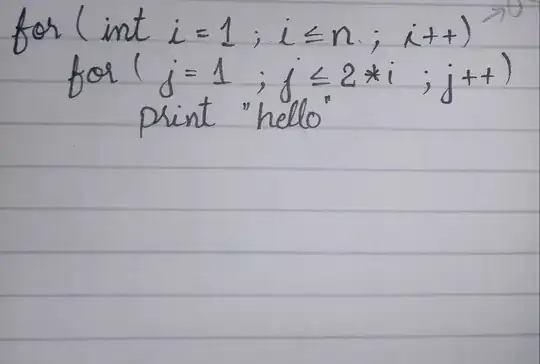 for( int i = 1 ; i ≤ n ; i++)
for( j = 1 ; j ≤ 2*i ; j++)
print "hello"